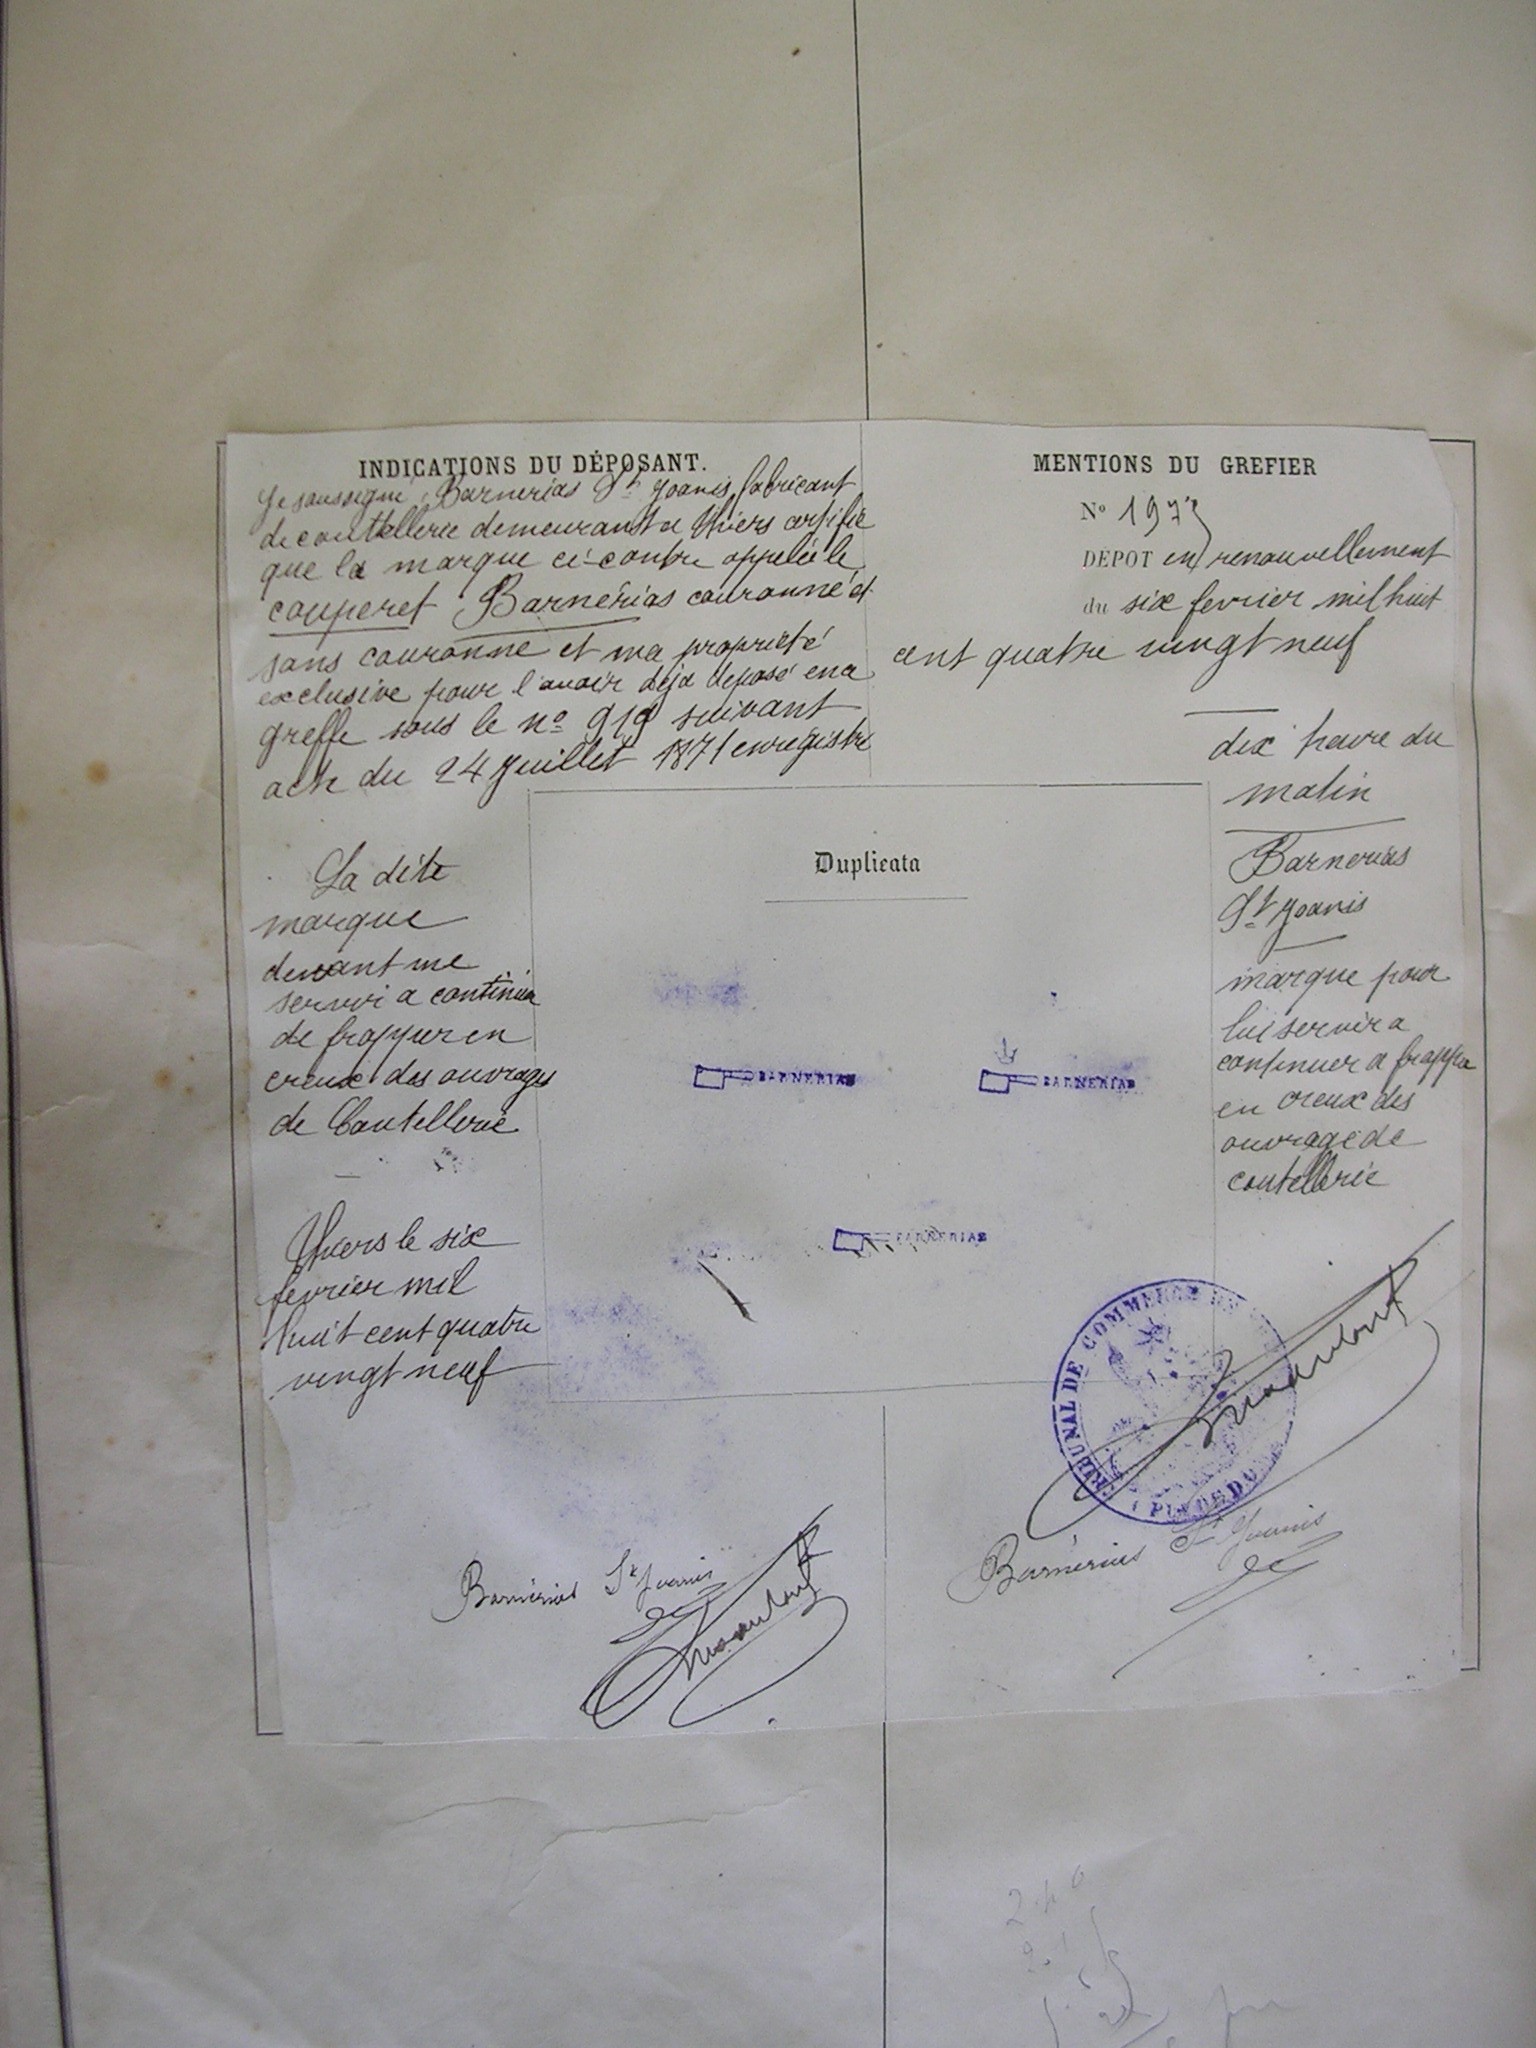 INDICATIONS DU DÉPOSANT.
Je soussigné, Barnérias St Joanis, fabricant
de coutellerie demeurant a Thiers certifie
que la marque ci-contre appelée le
couperet Barnérias couronné et
sans couronne et ma propriété
exclusive pour l'avoir déjà déposé en ce
greffe sous le no 919 suivant
acte du 24 juillet 1871 enregistré
La dite
marque
devant me
servir a continuer
de frapper en
creux des ouvrages
de Coutellerie
Thiers le six
février mil
huit cent quatre
vingt neuf
MENTIONS DU GREFIER
No 1973
DÉPOT en renouvellement
du six fevrier mil huit
cent quatre vingt neuf
dix heure du
matin
Barnerias
St Joanis
marque pour
lui servir a
continuer a frapper
en creux des
ouvrage de
coutellerie
Duplicata
BARNERIAS
BARNERIAS
BARNERIAS
TRIBUNAL DE COMMERCE DE
PUY DE DOME
Barnérias St Joanis
Barnérias St Joanis